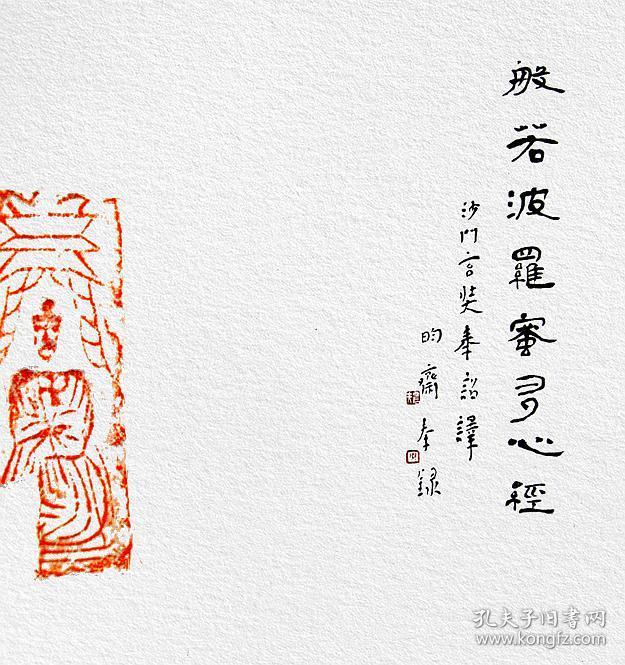 般若波羅蜜多心經
沙門玄奘奉詔譯
昀齋奉錄
孔夫子旧书网
www.kongfz.com